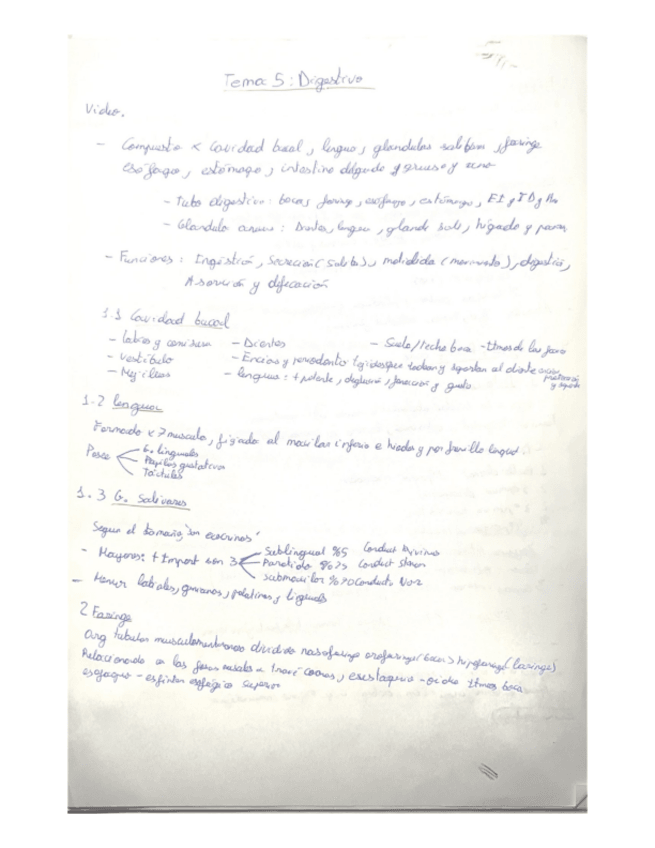 Tema 5: Digestivo
Video.
- Compuesto x cavidad bucal, lengua, glandulas salibares, faringe
esófago, estómago, intestino delgado y grueso y ano
- Tubo digestivo: boca, faringe, esófago, estómago, EI y TD y
- Glandula anexa: Dientes, lengua, gland sali, higado y pancr
- Funciones: Ingestión, Secreción (Saliba), motilidida (movimiento), digestión,
Absorción y difecación
1.1 Cavidad bucal
- labios y comisura - Dientes - Suelo/techo boca
- Vestibulo - Encias y periodonto tejidos que rodean y soportan al diente
- Mejillas - lengua: + potente, deglución, fonación y gusto
1.2 lengua
Formado x 7 musculo, fijado al maxilar inferior e hiodes y por frenillo lingual.
Posee G. linguales
Papilas gustativas
Táctiles
1.3 G. Salivares
Segun el tamaño, son exocrinos
- Mayores: + Import son 3 Sublingual %5 Conduct
Parotida Conduct stenon
submaxilar Conducto
- Menor labiales, palatinas y linguals
2 Faringe
Org tubular musculomembranoso dividido nasofaringe orofaringe (boca) hipofaringe (laringe)
Relacionado a las fosas nasales boca
esofago - esfinter esofágico superior